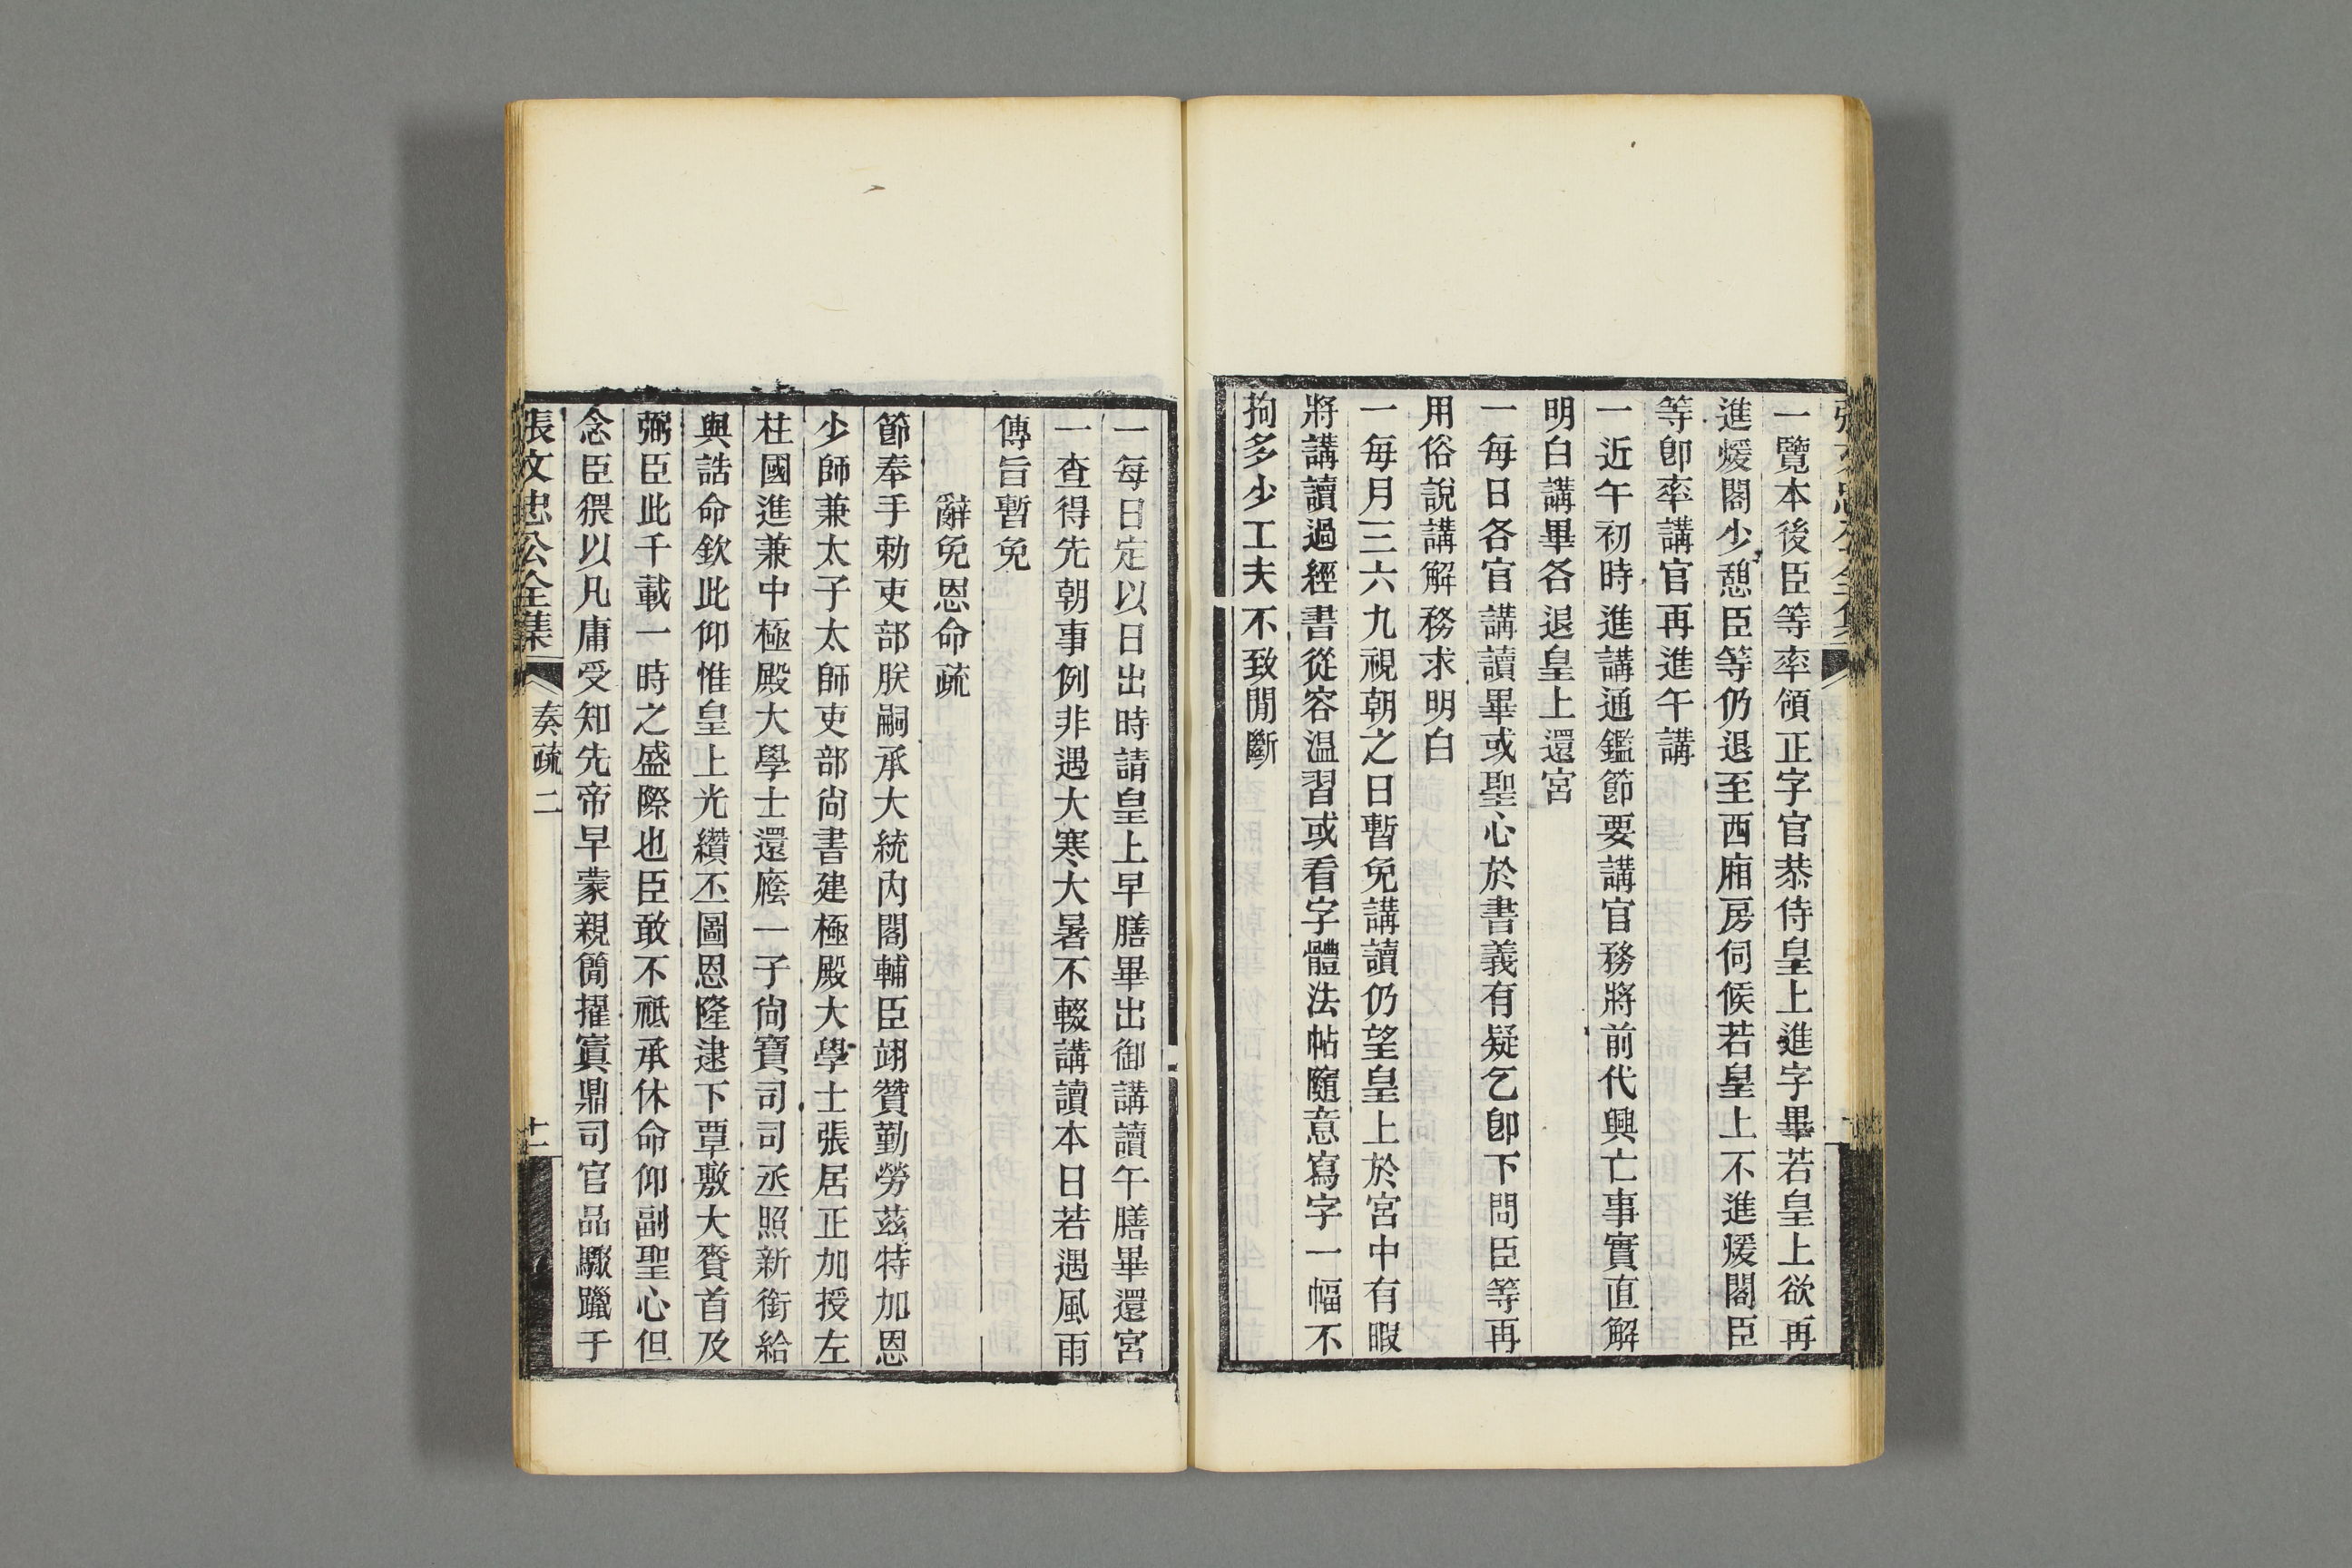 一覽本後臣等率領正字官恭侍皇上進字畢若皇上欲再
進煖閣少憩臣等仍退至西廂房伺候若皇上不進煖閣臣
等卽率講官再進午講
一近午初時進講通鑑節要講官務將前代興亡事實直解
明白講畢各退皇上還宮
一每日各官講讀畢或聖心於書義有疑乞卽下問臣等再
用俗說講解務求明白
一每月三六九視朝之日暫免講讀仍望皇上於宮中有暇
將講讀過經書從容温習或看字體法帖隨意寫字一幅不
拘多少工夫不致閒斷
一每日定以日出時請皇上早膳畢出御講讀午膳畢還宮
一查得先朝事例非遇大寒大暑不輟講讀本日若遇風雨
傳旨暫免
辭免恩命疏
節奉手勅吏部朕嗣承大統內閣輔臣翊贊勤勞茲特加恩
少師兼太子太師吏部尙書建極殿大學士張居正加授左
柱國進兼中極殿大學士還廕一子尙寶司司丞照新銜給
與誥命欽此仰惟皇上光纘丕圖恩隆逮下覃敷大賚首及
弼臣此千載一時之盛際也臣敢不祗承休命仰副聖心但
念臣猥以凡庸受知先帝早蒙親簡擢寘鼎司官品驟躐于
張文忠公全集 奏疏二 十一